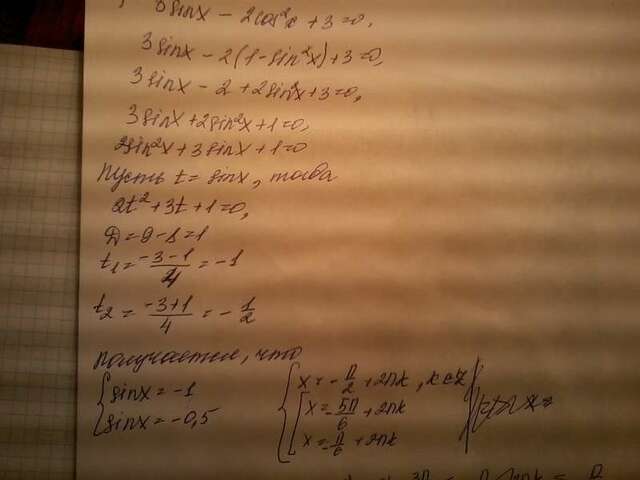 3sinx - 2cos²x + 3 = 0,
3sinx - 2(1 - sin²x) + 3 = 0,
3sinx - 2 + 2sin²x + 3 = 0,
3sinx + 2sin²x + 1 = 0,
2sin²x + 3sinx + 1 = 0
Пусть t = sinx, тогда
2t² + 3t + 1 = 0,
D = 9 - 8 = 1
t₁ = (-3 - 1)/4 = -1
t₂ = (-3 + 1)/4 = -1/2
получается, что
sinx = -1
sinx = -0,5
x = -π/2 + 2πk, k∈Z
x = -5π/6 + 2πk
x = -π/6 + 2πk